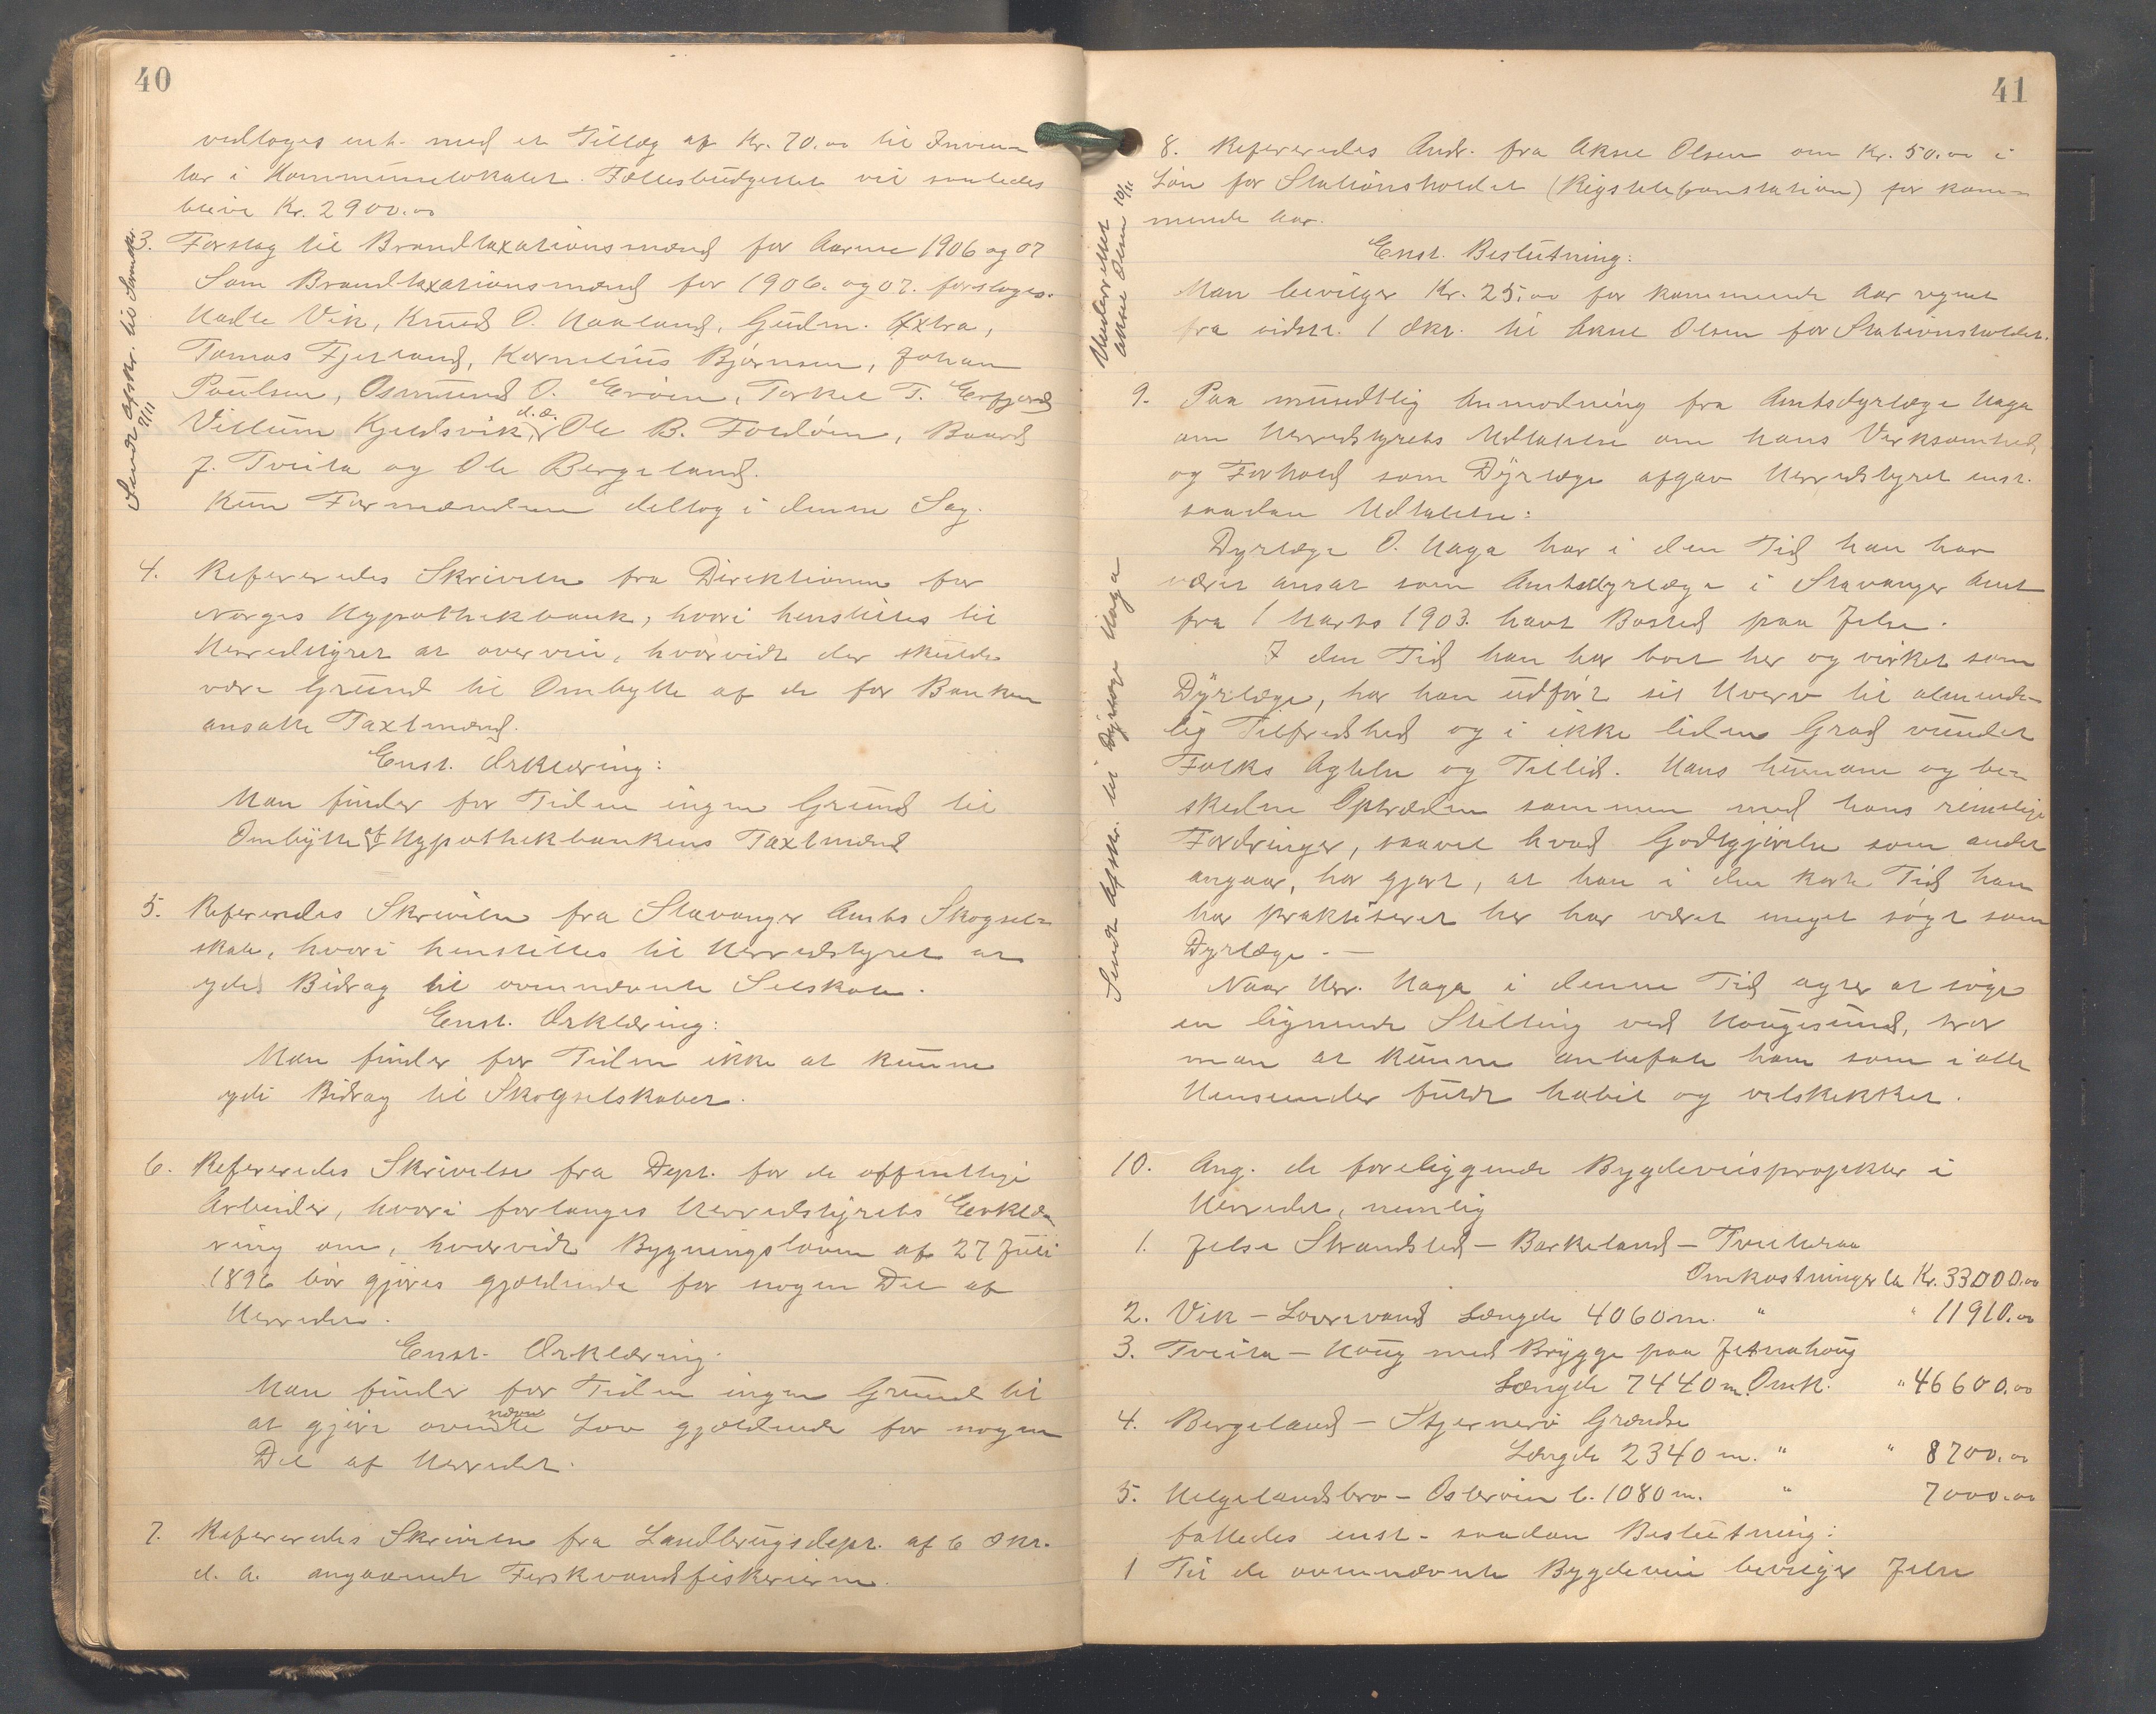 40
vedtoges enst. med et Tillæg af Kr. 70.00 til Inven-
tar i Kommunelokalet. Fællesbudgettet vil saaledes
blive Kr. 2900.00
3. Forslag til Brandtaxationsmænd for Aarene 1906 og 07
Som Brandtaxationsmænd for 1906. og 07. forsloges.
Nadle Vik, Knud O. Haaland, Gudm. Hxtra,
Tomas Fjelland, Kornelius Bjørnsen, Johan
Poulsen, Osmund O. Eróen, Torkel T. Erfjord
Villum Kjeldsvik d.æ. Ole B. Foldöen, Baard
J. Tveita og Ole Bergeland.
Kun Formændene deltog i denne Sag.
Sendt afskr. til Lensm.
7/11
4. Refereredes Skrivelse fra Direktionen for
Norges Hypothekbank, hvori henstilles til
Herredstyret at overveie, hvorvidt der skulde
være Grund til Ombytte af de for Banken
ansatte Taxtmænd.
Enst. Erklæring:
Man finder for Tiden ingen Grund til
Ombytte af Hypothekbankens Taxtmænd
5. Refereredes Skrivelse fra Stavanger Amts Skogsel-
skab, hvori henstilles til Herredstyret at
yde Bidrag til ovennævnte Selskab.
Enst. Erklæring:
Man finder for Tiden ikke at kunne
yde Bidrag til Skogselskabet.
6. Refereredes Skrivelse fra Dept. for de offentlige
Arbeider, hvori forlanges Herredstyrets Erklæ-
ring om, hvorvidt Bygningsloven af 27 Juli
1896 bör gjöres gjældende for nogen Del af
Herredet.
Enst. Erklæring.
Man finder for Tiden ingen Grund til
at gjöre ovennævnte Lov gjældende for nogen
Del af Herredet.
7. Refereredes Skrivelse fra Landbrugsdept. af 6 Okt.
d. A. angaaende Ferskvandsfiskerierne.
41
8. Refereredes Andr. fra Akse Olsen om Kr. 50.00 i
Lön for Stationsholdet (Rigstelefonstation) for kom-
mende Aar.
Enst. Beslutning:
Man bevilger Kr. 25.00 for kommende Aar regnet
fra sidste 1 Okt. til Akse Olsen for Stationsholdet.
Underrettet
Akse Olsen 10/11
9. Paa mundtlig Anmodning fra Amtsdyrlæge Haga
om Herredstyrets Udtalelse om hans Virksomhed
og Forhold som Dyrlæge afgav Herredstyret enst.
saadan Udtalelse:
Dyrlæge O. Haga har i den Tid han har
været ansat som Amtsdyrlæge i Stavanger Amt
fra 1 Marts 1903. havt Bosted paa Jelse.
I den Tid han har boet her og virket som
Dyrlæge, har han udfört sit Hverv til alminde-
lig Tilfredshed og i ikke liden Grad vundet
Folks Agtelse og Tillid. Hans humane og be-
skedne Optræden sammen med hans rimelige
Fordringer, saavel hvad Godtgjörelse som andet
angaar, har gjort, at han i den korte Tid han
har praktiseret her har været meget sögt som
Dyrlæge. —
Naar Hr. Haga i denne Tid agter at söge
en lignende Stilling ved Haugesund, tror
man at kunne anbefale ham som i alle
Henseender fuldt habil og velskikket.
Sendt Afskr. til Dyrlæge Haga
10. Ang. de foreliggende Bygdeveisprojekter i
Herredet, nemlig
1. Jelse Strandsted – Barkeland – Tveiteraa
Omkostninger ca Kr. 33000.00
2. Vik – Lovravand Længde 4060 m. " " 11910.00
3. Tveita – Haug med Brygge paa Jelsahaug
Længde 7440 m. Omk. " 46600.00
4. Bergeland – Stjernerö Grændse
Længde 2340 m. " " 8700.00
5. Helgelandsbro – Osteröen l. 1080 m. " 7000.00
fattedes enst. saadan Beslutning:
1 Til de ovennævnte Bygdeveie bevilger Jelse